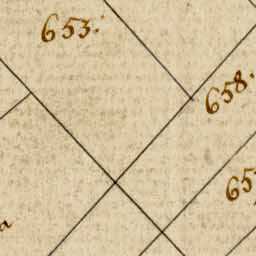 653.
658.
65
a